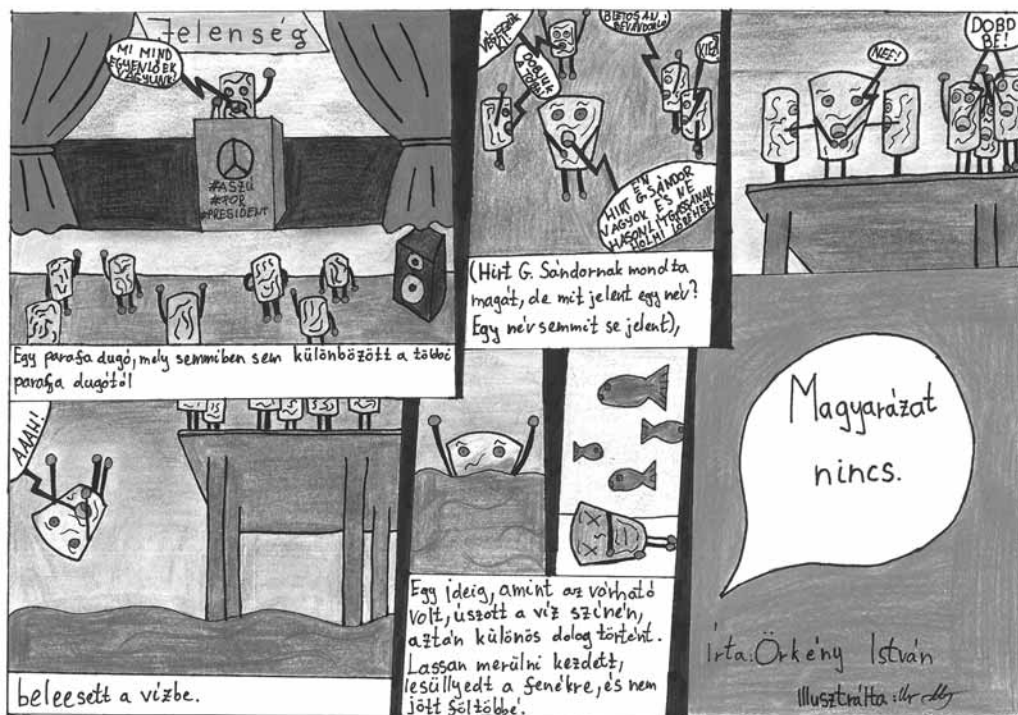 Jelenség
MI MIND
EGYENLŐEK
VAGYUNK!
#ASZÚ
#FOR
#PRESIDENT
Egy parafa dugó, mely semmiben sem különbözött a többi
parafa dugótól
VÉGEZZÜK
KI!
DOBJUK
BIZTOSAN
BEVÁNDORLÓ!
ÉN
HIRT G. SÁNDOR
VAGYOK, ÉS NE
HASONLÍTGASSANAK
HOLMI
(Hirt G. Sándornak mondta
magát, de mit jelent egy név?
Egy név semmit se jelent),
NEE!
DOBD
BE!
AAAH!
beleesett a vízbe.
Egy ideig, amint az várható
volt, úszott a víz színén,
aztán különös dolog történt.
Lassan merülni kezdett,
lesüllyedt a fenékre, és nem
jött föltöbbé.
Magyarázat
nincs.
Írta: Örkény István
Illusztrálta: